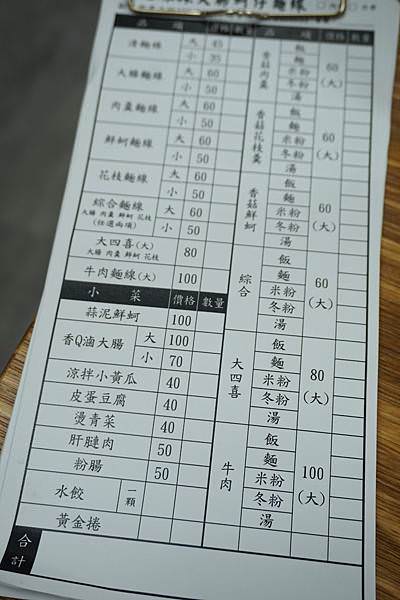 仔麵線
品 項 價格 數量
清麵線 大 45
小 35
大腸麵線 大 60
小 50
肉羹麵線 大 60
小 50
鮮蚵麵線 大 60
小 50
花枝麵線 大 60
小 50
綜合麵線 大 60
大腸 肉羹 鮮蚵 花枝
(任選兩項) 小 50
大四喜(大) 80
大腸 肉羹 鮮蚵 花枝
牛肉麵線(大) 100
小 菜 價格 數量
蒜泥鮮蚵 100
香Q滷大腸 大 100
小 70
涼拌小黃瓜 40
皮蛋豆腐 40
燙青菜 40
肝膢肉 50
粉腸 50
水餃 一顆
黃金捲
合計
品 項 價格 數量
香菇肉羹 飯 麵 米粉 冬粉 湯 60(大)
香菇花枝羹 飯 麵 米粉 冬粉 湯 60(大)
香菇鮮蚵 飯 麵 米粉 冬粉 湯 60(大)
綜合 飯 麵 米粉 冬粉 湯 60(大)
大四喜 飯 麵 米粉 冬粉 湯 80(大)
牛肉 飯 麵 米粉 冬粉 湯 100(大)